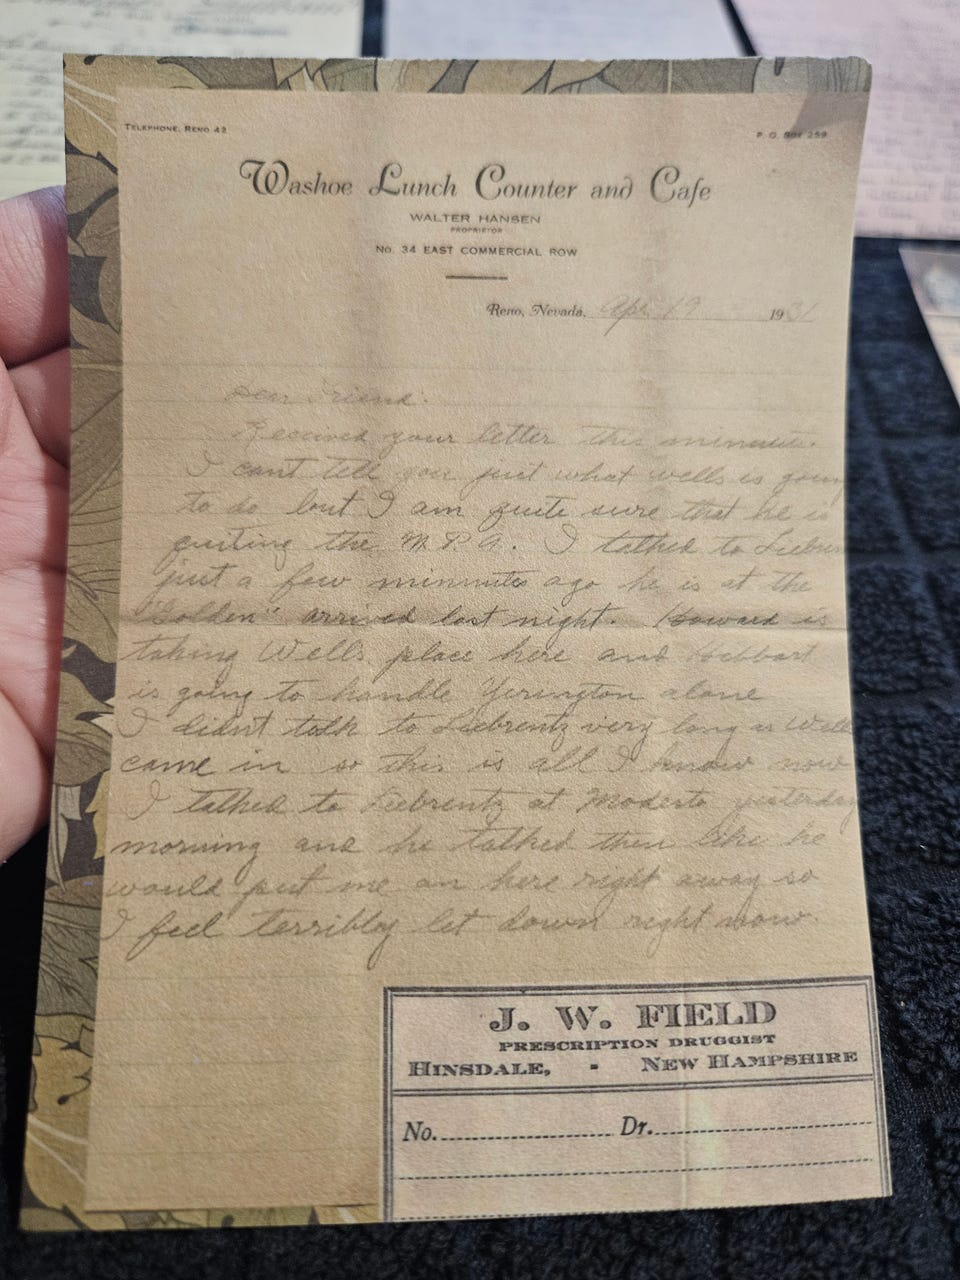 TELEPHONE, RENO 42
P. O. Box 259
Washoe Lunch Counter and Cafe
WALTER HANSEN
PROPRIETOR
No. 34 EAST COMMERCIAL ROW
Reno, Nevada, Apr 19 1931
Dear Friend:
Received your letter this minnute.
I cant tell you just what wells is going
to do but I am quite sure that he is
quiting the M.P.A. I talked to
just a few minnutes ago he is at the
"Golden" arrived last night. Howard is
taking Wells place here and Hebbart
is going to handle Yerington alone
I didnt talk to Liebrentz very long as Wells
came in so this is all I know now
I talked to Liebrentz at Modesto yesterday
morning and he talked then like he
would put me on here right away so
I feel terribley let down right now.
J. W. FIELD
PRESCRIPTION DRUGGIST
HINSDALE, - NEW HAMPSHIRE
No. Dr.